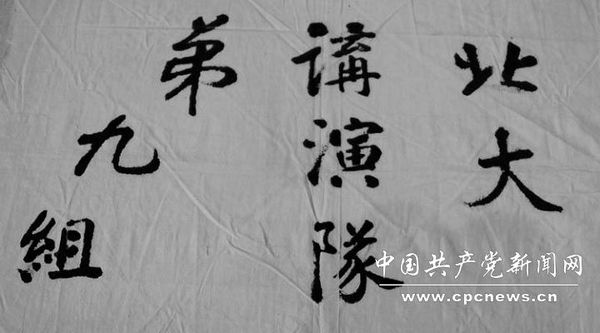 北大
講演隊
弟九組
中国共产党新闻网
www.cpcnews.cn